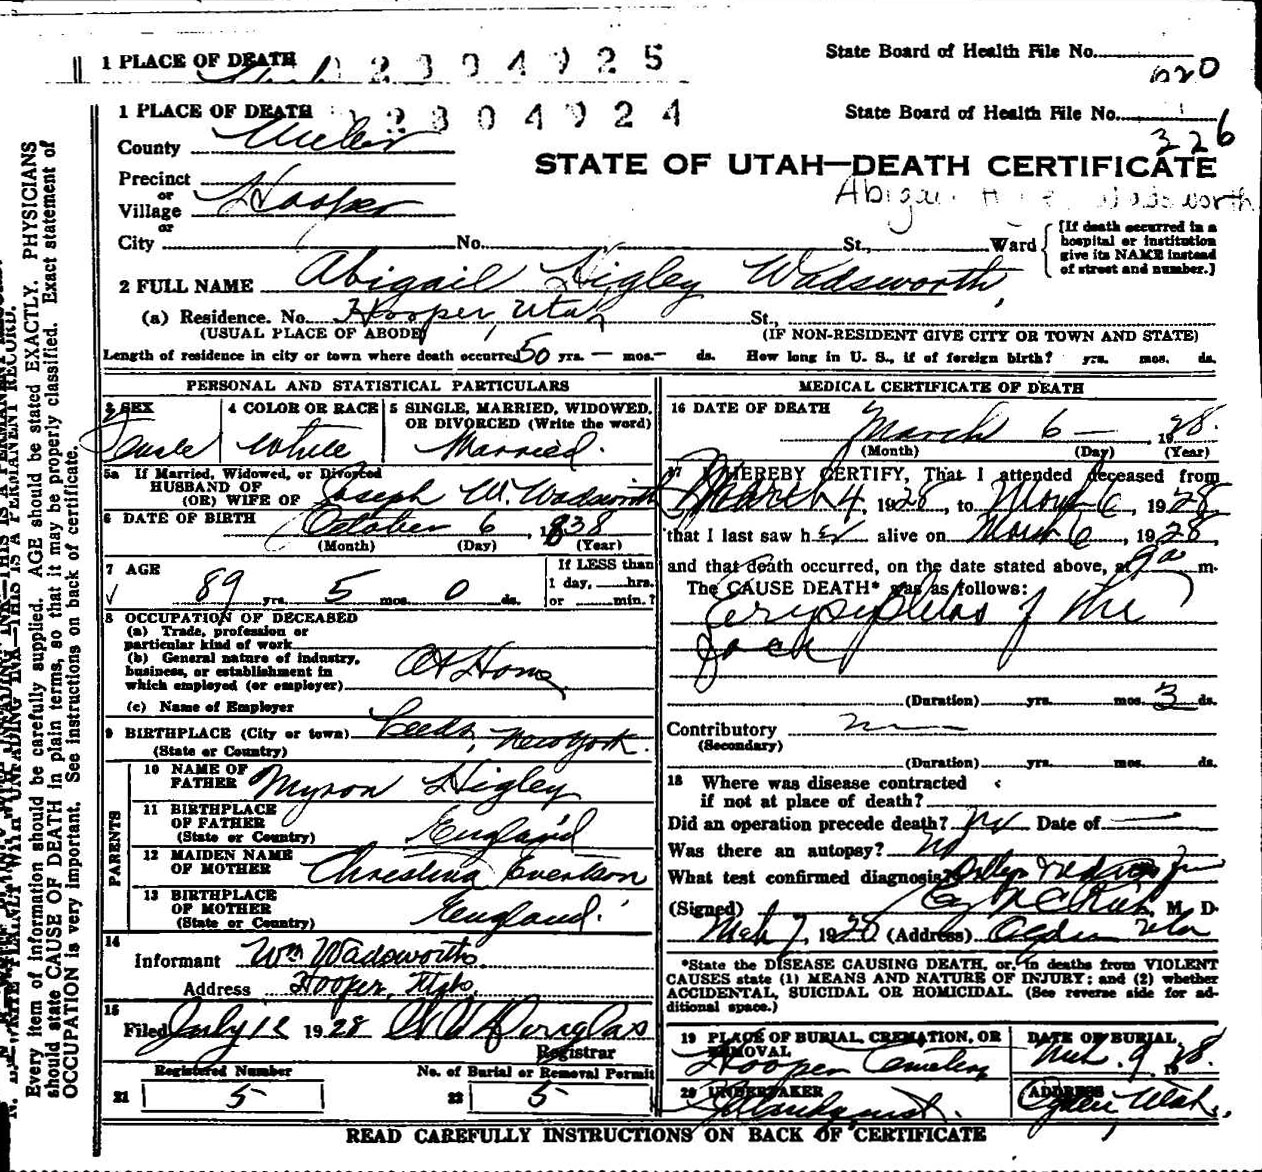 1 PLACE OF DEATH 2304925 State Board of Health File No.
620
1 PLACE OF DEATH 2304924 State Board of Health File No.
326
County Weber
STATE OF UTAH—DEATH CERTIFICATE
Precinct
or
Village Hooper
or
City No. St., Ward
[If death occurred in a hospital or institution give its NAME instead of street and number.]
2 FULL NAME Abigail Higley Wadsworth,
(a) Residence. No. Hooper, Utah St.,
(USUAL PLACE OF ABODE) (IF NON-RESIDENT GIVE CITY OR TOWN AND STATE)
Length of residence in city or town where death occurred 50 yrs. — mos. — ds. How long in U. S., if of foreign birth? yrs. mos. ds.
PERSONAL AND STATISTICAL PARTICULARS
3 SEX 4 COLOR OR RACE 5 SINGLE, MARRIED, WIDOWED, OR DIVORCED (Write the word)
Female White Married.
5a If Married, Widowed, or Divorced
HUSBAND OF
(OR) WIFE OF Joseph W. Wadsworth
6 DATE OF BIRTH October 6, 1838
(Month) (Day) (Year)
7 AGE
89 yrs. 5 mos. 0 ds.
If LESS than
1 day, hrs.
or min.?
8 OCCUPATION OF DECEASED
(a) Trade, profession or
particular kind of work
(b) General nature of industry,
business, or establishment in
which employed (or employer)
At Home
(c) Name of Employer
9 BIRTHPLACE (City or town) Leeds, New York.
(State or Country)
PARENTS
10 NAME OF FATHER Myron Higley
11 BIRTHPLACE OF FATHER England
(State or Country)
12 MAIDEN NAME OF MOTHER Christina Evertson
13 BIRTHPLACE OF MOTHER England.
(State or Country)
14
Informant Wm Wadsworth
Address Hooper, Utah.
15
Filed July 1928 Douglas
Registrar
Registered Number No. of Burial or Removal Permit
21 5 22 5
MEDICAL CERTIFICATE OF DEATH
16 DATE OF DEATH
March 6 — , 1928.
(Month) (Day) (Year)
17 I HEREBY CERTIFY, That I attended deceased from
March 4, 1928, to March 6, 1928
that I last saw her alive on March 6, 1928,
and that death occurred, on the date stated above, at 9 a m.
The CAUSE DEATH* was as follows:
Erysipelas of the
face
(Duration) yrs. mos. 3 ds.
Contributory
(Secondary)
(Duration) yrs. mos. ds.
18 Where was disease contracted
if not at place of death?
Did an operation precede death? no Date of —
Was there an autopsy? no
What test confirmed diagnosis?
(Signed) M. D.
Mch 7, 1928 (Address) Ogden Utah
*State the DISEASE CAUSING DEATH, or, in deaths from VIOLENT
CAUSES state (1) MEANS AND NATURE OF INJURY; and (2) whether
ACCIDENTAL, SUICIDAL OR HOMICIDAL. (See reverse side for ad-
ditional space.)
19 PLACE OF BURIAL, CREMATION, OR REMOVAL DATE OF BURIAL
Hooper Cemetery Mch. 9 1928.
20 UNDERTAKER ADDRESS
Ogden, Utah.
READ CAREFULLY INSTRUCTIONS ON BACK OF CERTIFICATE
Every item of information should be carefully supplied. AGE should be stated EXACTLY. PHYSICIANS
should state CAUSE OF DEATH in plain terms, so that it may be properly classified. Exact statement of
OCCUPATION is very important. See instructions on back of certificate.